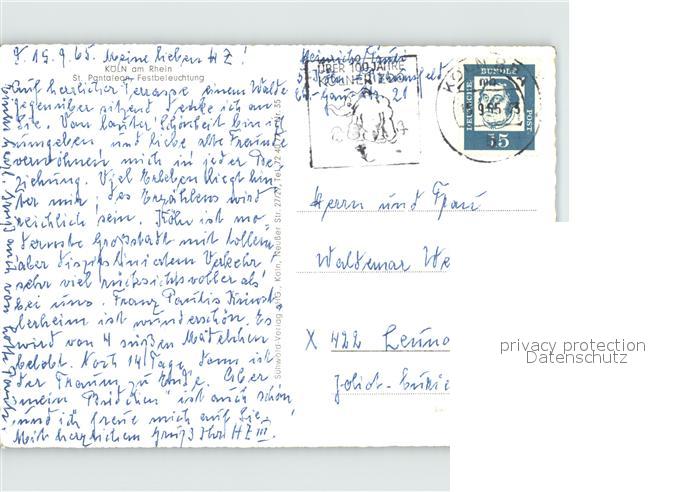 15.9.65. Meine lieben HZ!
KÖLN am Rhein
St. Pantaleon, Festbeleuchtung
Auf herrlicher Terrasse einem Walde
gegenüber sitzend denke ich an
Sie. Von lauter Schönheit bin ich
umgeben und liebe alte Freunde
verwöhnen mich in jeder Be-
ziehung. Viel Erleben liegt hin-
ter mir, des Erzählens wird
reichlich sein. Köln ist mo-
dernste Großstadt mit tollem
aber diszipliniertem Verkehr
sehr viel rücksichtsvoller als
bei uns. Franz Paulis Künst-
lerheim ist wunderschön. Es
wird von 4 süßen Mädelchen
belebt. Noch 14 Tage, dann ist
der Traum zu Ende. Aber
mein "Büdchen" ist auch schön
und ich freue mich auf Sie.
Mit herzlichem Gruß Ihr HZ III.
ÜBER 100 JAHRE
KÖLNER ZOO
KÖLN
DEUTSCHE BUNDESPOST
15
Herrn und Frau
Waldemar We
X 422 Leuna
Joliot-Curie
privacy protection
Datenschutz